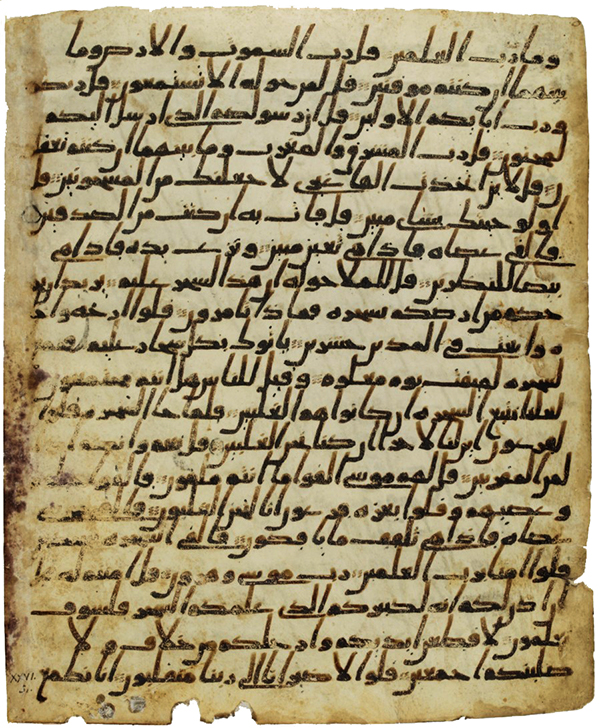 وما رب العلمين قل رب السموت والارض وما
بينهما ان كنتم موقنين قل لمن حوله الا تستمعون قل ربكم
ورب ابايكم الاولين قل ان رسولكم الذي ارسل اليكم
لمجنون قل رب المشرق والمغرب وما بينهما ان كنتم تعقلو
ن قل لين اتخذت الها غيري لاجعلنك من المسجونين قل
اولو جيتك بشاي مبين قل فات به ان كنت من الصدقين
فالقى عصاه فاذا هي ثعبن مبين ونزع يده فاذا هي
بيضا للنظرين قل للملا حوله ان هذا لسحر عليم يريد ان يخر
جكم من ارضكم بسحره فماذا تامرون قلوا ارجه واخا
ه وابعث في المدين حشرين ياتوك بكل سحار عليم فجمع
السحره لميقت يوم معلوم وقيل للناس هل انتم مجتمعون
لعلنا نتبع السحره ان كانوا هم الغلبين فلما جا السحره قلوا
لفرعون اين لنا لاجرا ان كنا نحن الغلبين قل نعم وانكم اذا
لمن المقربين قل لهم موسى القوا ما انتم ملقون فالقوا حبلهم
وعصيهم وقلوا بعزه فرعون انا لنحن الغلبون فالقى موسى
عصاه فاذا هي تلقف ما يافكون فالقي السحره سجدين
قلوا امنا برب العلمين رب موسى وهرون قل امنتم له قبل
ان اذن لكم انه لكبيركم الذي علمكم السحر فلسوف
تعلمون لاقطعن ايديكم وارجلكم من خلف ولا
صلبنكم اجمعين قلوا لا ضير انا الى ربنا منقلبون انا نطمع
XXVI.